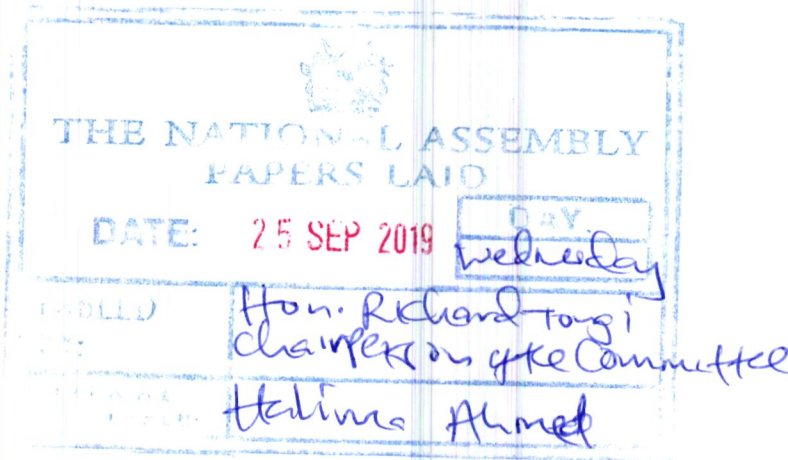 THE NATIONAL ASSEMBLY
PAPERS LAID
DATE: 25 SEP 2019 DAY
Wednesday
TABLED
Hon. Richard Tongi
Chairperson of the Committee
BY:
Halima Ahmed